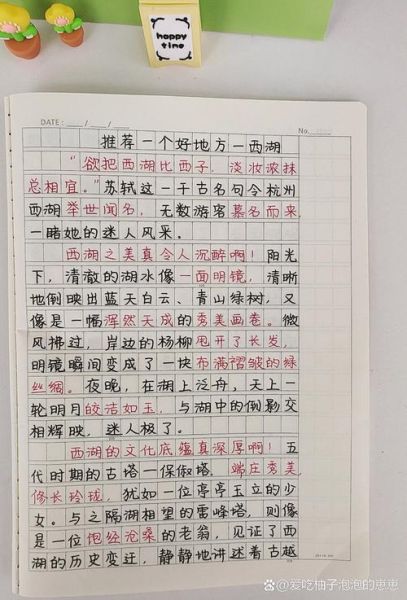 happy
time
DATE: ___/___/___
No.
推荐一个好地方一西湖
"欲把西湖比西子，淡妆浓抹
总相宜。"苏轼这一千古名句令杭州
西湖举世闻名，无数游客慕名而来，
一睹她的迷人风采。
西湖之美真令人沉醉啊！阳光
下，清澈的湖水像一面明镜，清晰
地倒映出蓝天白云、青山绿树，又
像是一幅浑然天成的秀美画卷。微
风拂过，岸边的杨柳甩开了长发，
明镜瞬间变成了一块布满褶皱的绿
丝绸。夜晚，在湖上泛舟，天上一
轮明月皎洁如玉，与湖中的倒影交
相辉映，迷人极了。
西湖的文化底蕴真深厚啊！五
代时期的古塔一保俶塔，端庄秀美
修长玲珑，犹如一位亭亭玉立的少
女。与之隔湖相望的雷峰塔，则像
是一位饱经沧桑的老翁，见证了西
湖的历史变迁，静静地讲述着古越
爱吃柚子泡泡的崽崽